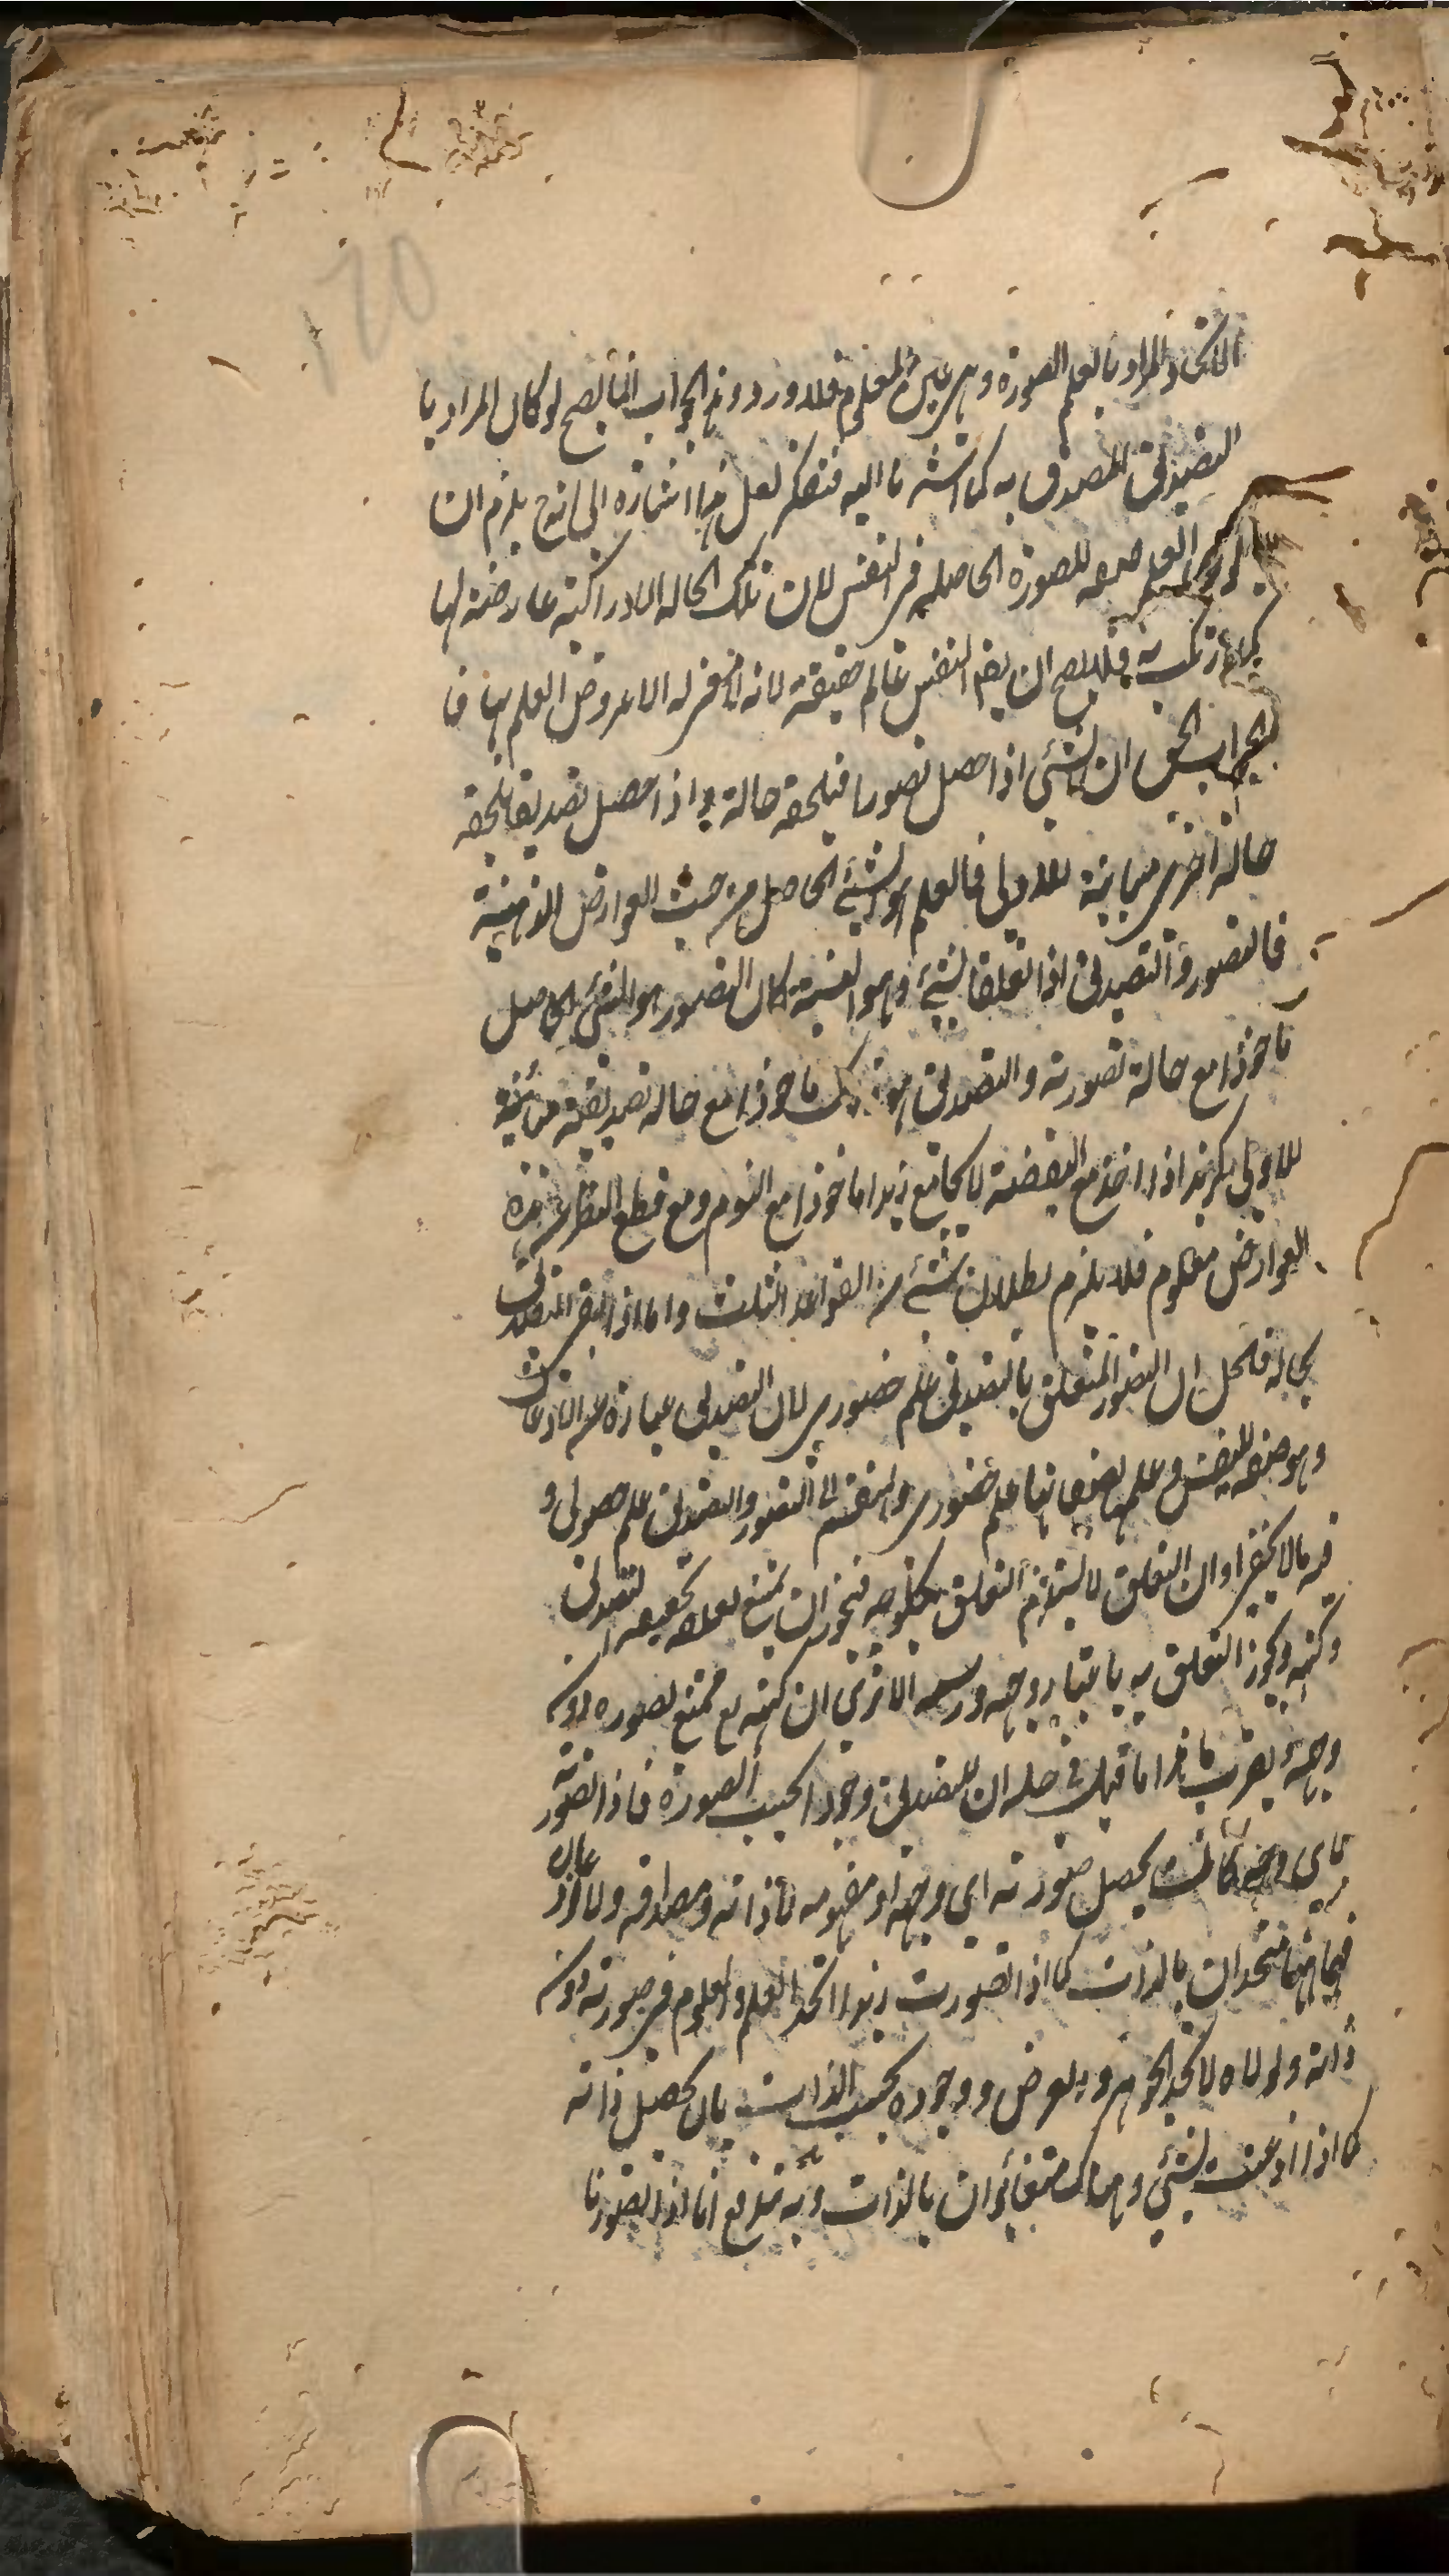 120
الاتحاد والمراد بالعلم الصورة وهي عين المعلوم فلا ورود وهذا الجواب انما يصح لو كان المراد با
التصديق المصدق به كما اشرنا اليه فتفكر لعل هذا اشارة الى انه ح يلزم ان
العلم صفة للصورة الحاصلة في النفس لان تلك الحالة الادراكية عارضة لها
فلا يصح ان يقم النفس عالم حقيقة لانه لا معنى له الا عروض العلم بها فا
لجواب الحق ان الشئ اذا حصل تصورا فيلحقه حالة واذا حصل تصديقا يلحقه
حالة اخرى مباينة للاولى فالعلم هو الشئ الحاصل من حيث العوارض الذهنية
فالتصور والتصديق اذا تعلقا بشئ وهو النسبة كان التصور هو الشئ الحاصل
ماخوذا مع حالة تصورية والتصديق هو ذلك ماخوذا مع حالة تصديقية مباينة
للاولى كزيد اذا اخذ مع اليقضة لا يجامع زيدا ماخوذا مع النوم ومع قطع النظر عن هذه
العوارض معلوم فلا يلزم بطلان شئ من القواعد الثلث واما اذا فسر التصديق
بحالة فلحل ان التصور المتعلق بالتصديق علم حضوري لان التصديق عبارة عن الاذعان
وهو صفة للنفس وعلمها بصفاتها علم حضوري والمنقسم الى التصور والتصديق علم حصولي و
فيه ما لا يخفى او ان التعلق لا يستلزم التعلق بكل وجه فيجوز ان يمتنع تعلقه بحقيقة التصديق
وكنهه ويجوز التعلق به باعتبار وجهه ورسمه الا ترى ان كنهه تع ممتنع تصوره دون
وجهه يقرب ما هذا ما قيل في حله ان للتصديق وجودا بحسب الصورة فاذا تصورته
باي وجه كانت يحصل صورته اي وجهه او مفهومه لا ذاته ومصداقه ولا اذعان
فيها فهما متحدان بالذات كما اذا تصورت زيدا اتحد العلم والمعلوم في صورته دون
ذاته ولولاه لاتحد الجوهر والعرض ووجوده بحسب الذات بان يحصل ذاته
كما اذا اذعنت بشئ وهناك متغائران بالذات وبه يندفع انا اذا تصورنا